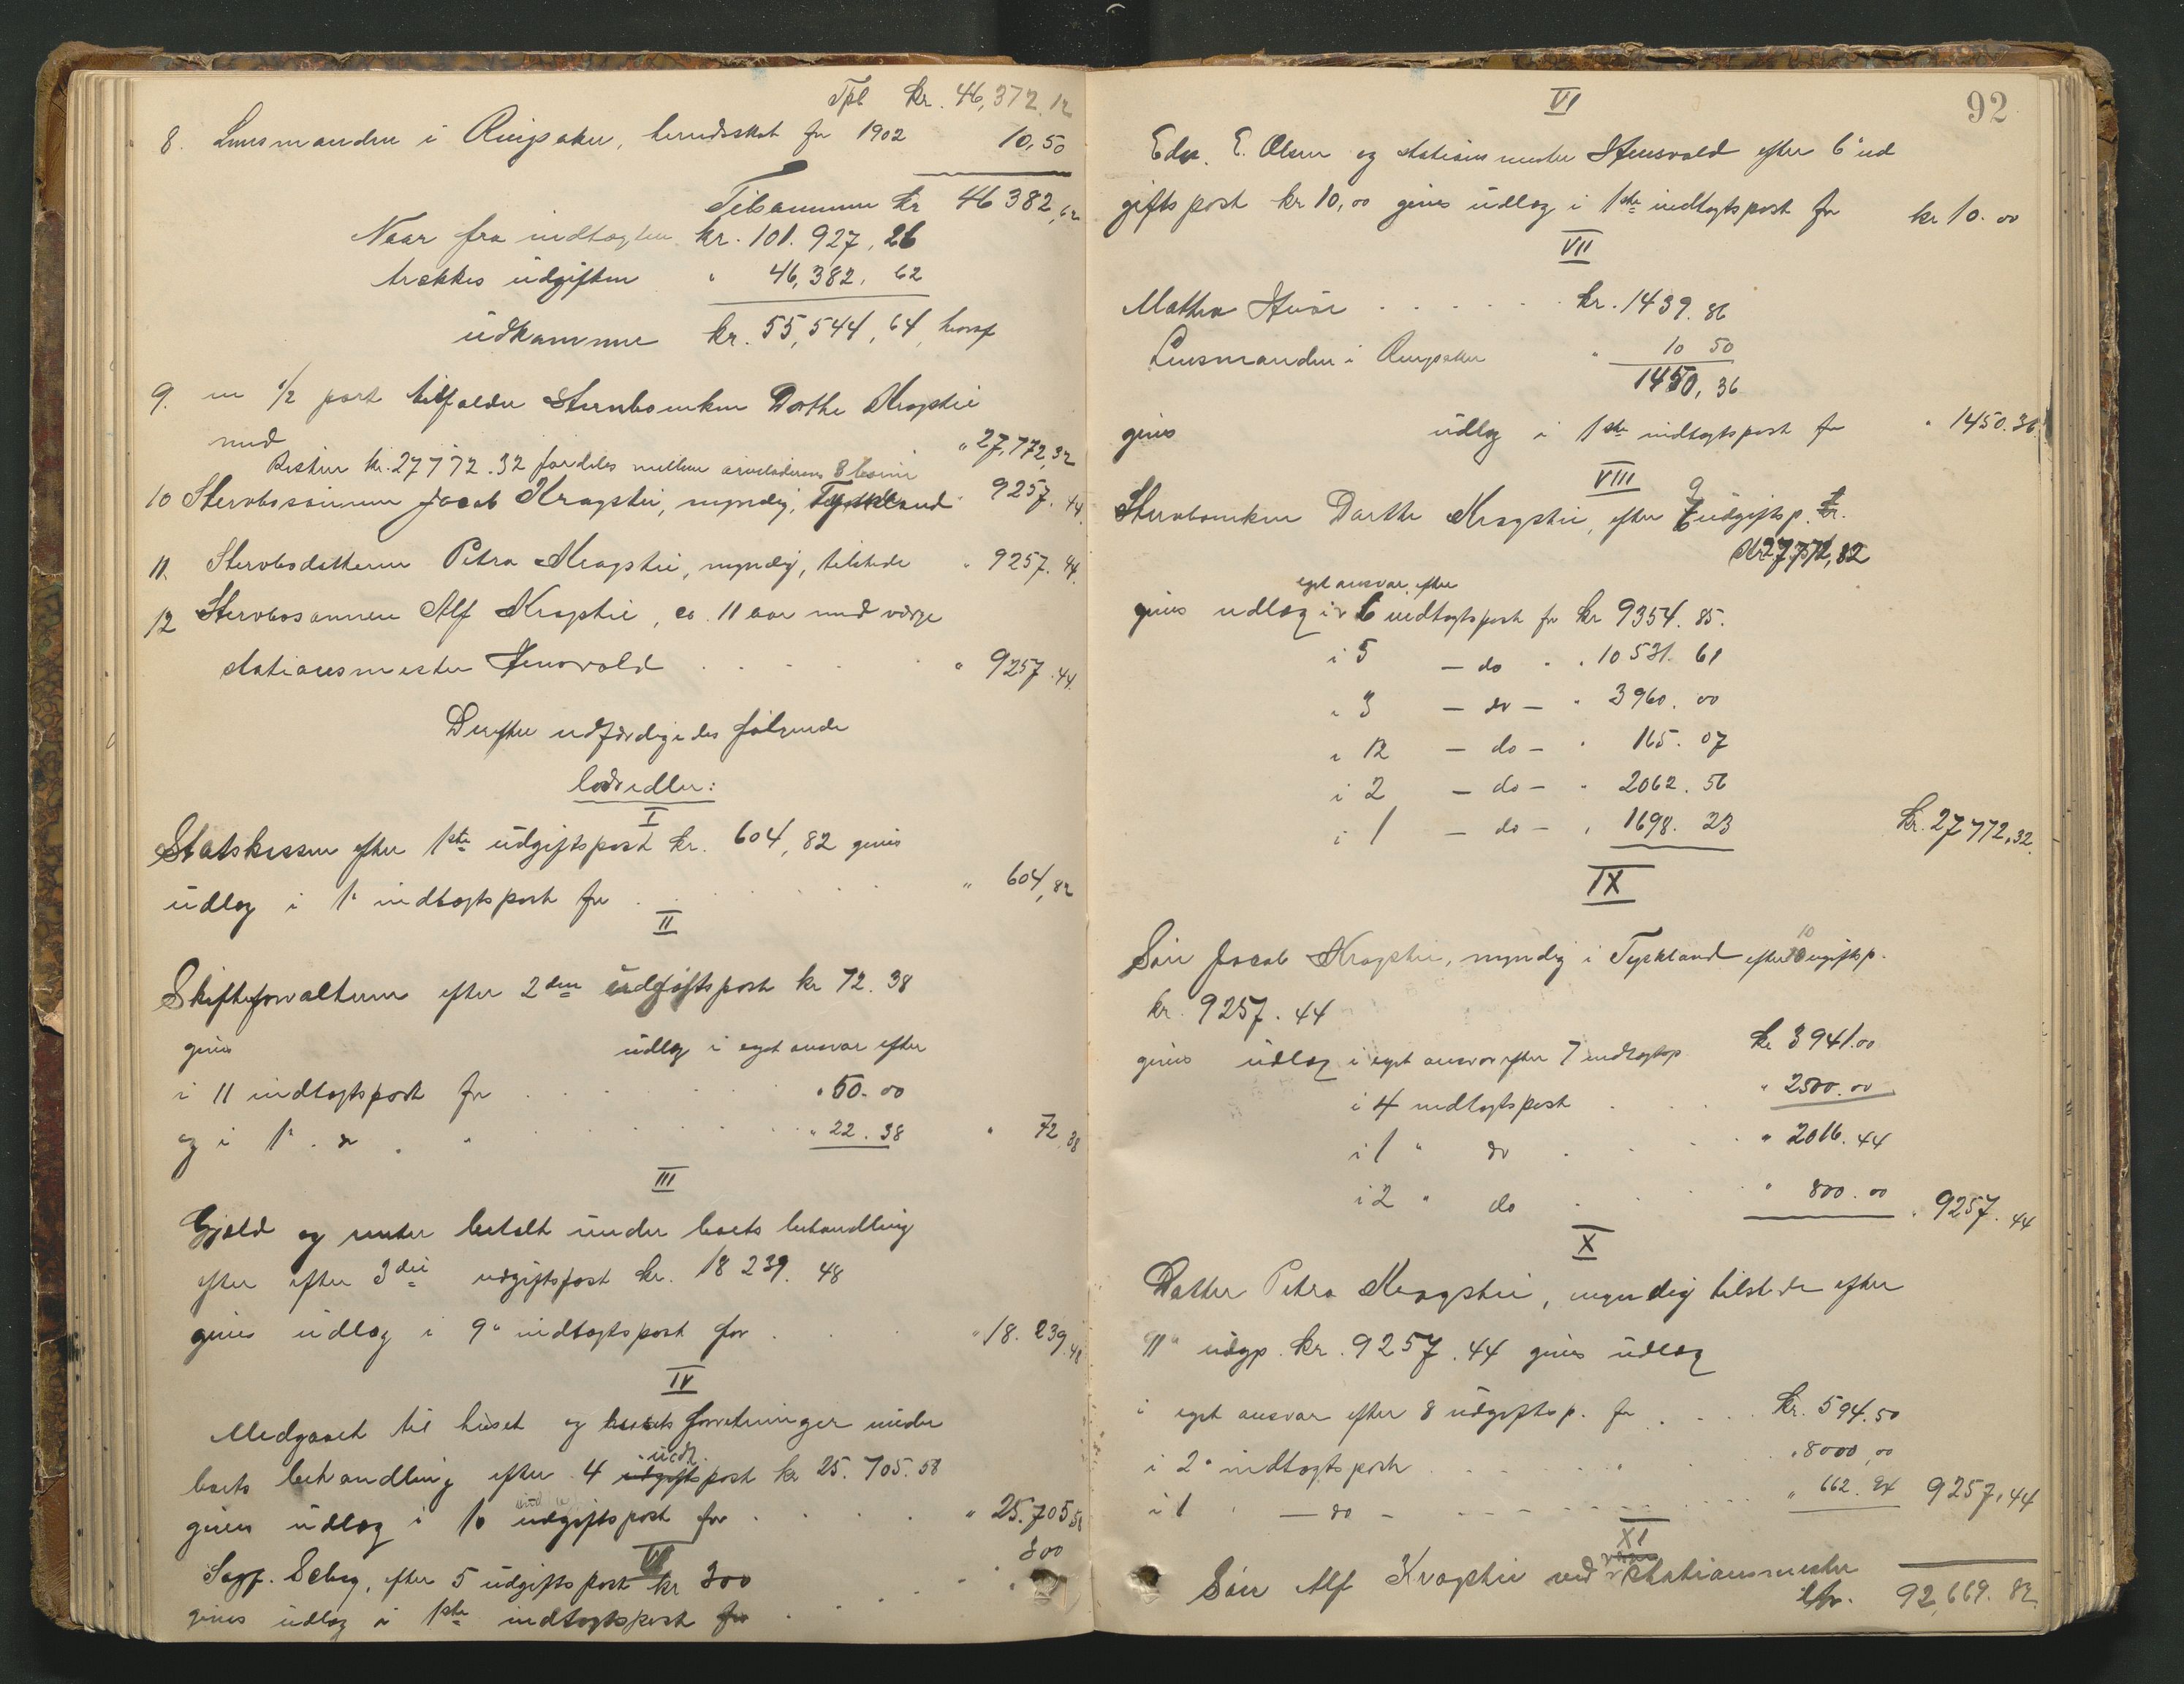 Tpl kr. 46,372.12
8. Lensmanden i Ringsaker, herredsskat for 1902 10,50
Tilsammen kr 46 382,62
Naar fra indtægten kr. 101.927,26
trækkes udgiften " 46,382,62
udkommer kr. 55,544,64, hvoraf
9. en 1/2 part tilfalder Stervboenken Dorthe Kragstie
med " 27,772,32
Resten kr. 27772.32 fordeles mellem arveladerens 3 børn
10 Stervbosønnen Jacob Kragstie, myndig, Tyskland " 9257.44
11. Stervbodatteren Petra Kragstie, myndig, tilstede " 9257.44
12 Stervbosønnen Alf Kragstie, ca. 11 aar med værge
stationsmester Stensvold . . . . " 9257.44
Derefter udfærdigedes følgende
lodsedler:
I
Statskassen efter 1ste udgiftspost kr. 604,82 gives
udlæg i 1" indtægtspost for . . . . . " 604,82
II
Skifteforvalteren efter 2den udgiftspost kr 72.38
gives udlæg i eget ansvar efter
i 11 indtægtspost for . . . . " 50.00
og i 1" . do . " . . . . " 22.38 " 72,38
III
Gjæld og renter betalt under boets behandling
efter efter 3die udgiftspost kr. 18 239.48
gives udlæg i 9" indtægtspost for . . . " 18.239.48
IV
Medgaaet til huset og husets forretninger under
indt.
boets behandling efter 4 udgiftspost kr 25.705.58
gives udlæg i 10 udgiftspost for . . . . " 25.705,58
V
Sagf. Seberg, efter 5 udgiftspost kr 300 300
gives udlæg i 1ste indtægtspost for . . . .
92
VI
Edv. E. Olsen og stationsmester Stensvold efter 6" ud
giftspost kr 10,00 gives udlæg i 1ste indtægtspost for kr 10.00
VII
Mathea Stuve . . . . . . kr. 1439.86
Lensmanden i Ringsaker " 10 50
1450,36
gives udlæg i 1ste indtægtspost for " 1450.36
VIII
9
Stervboenken Dorthe Kragstie, efter 7 udgiftsp. kr.
kr 27,772,32
eget ansvar efter
gives udlæg i 6 indtægtspost for kr 9354.85.
i 5 — do " " 10 531.61
" 3 — do — " 3960.00
" 12 — do — " 165.07
i 2 — do — " 2062.56
i 1 — do — " 1698.23 kr. 27 772,32.
IX
10
Søn Jacob Kragstie, myndig i Tyskland efter 10 ugiftsp.
kr. 9257.44
gives udlæg i eget ansvar efter 7 indtægtsp. kr 3941.00
i 4 indtægtspost . . . " 2500.00
i 1 " do . . . " 2016.44
i 2 " do . . . " 800.00 " 9257.44
X
Datter Petra Kragstie, myndig tilstede efter
11" udgp. kr. 9257.44 gives udlæg
i eget ansvar efter 8 udgiftsp. for . . . kr. 594.50
i 2" indtægtspost . . . . " 8000,00
i 1 " — do — . . . . " 662.94 9257,44
XI
Søn Alf Kragstie ved stationsmester
ltr. 92,669.82.